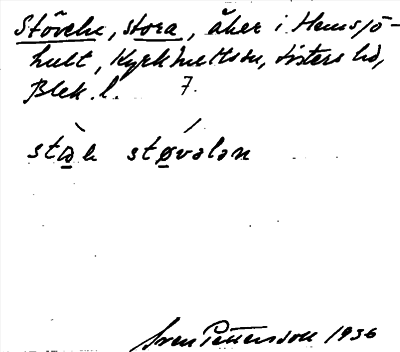 Störele, stora, åker i Hemsjö-
hult, Kyrkhults sn, Listers hd,
Blek. l. 7.
støvələn
Sven Pettersson 1936